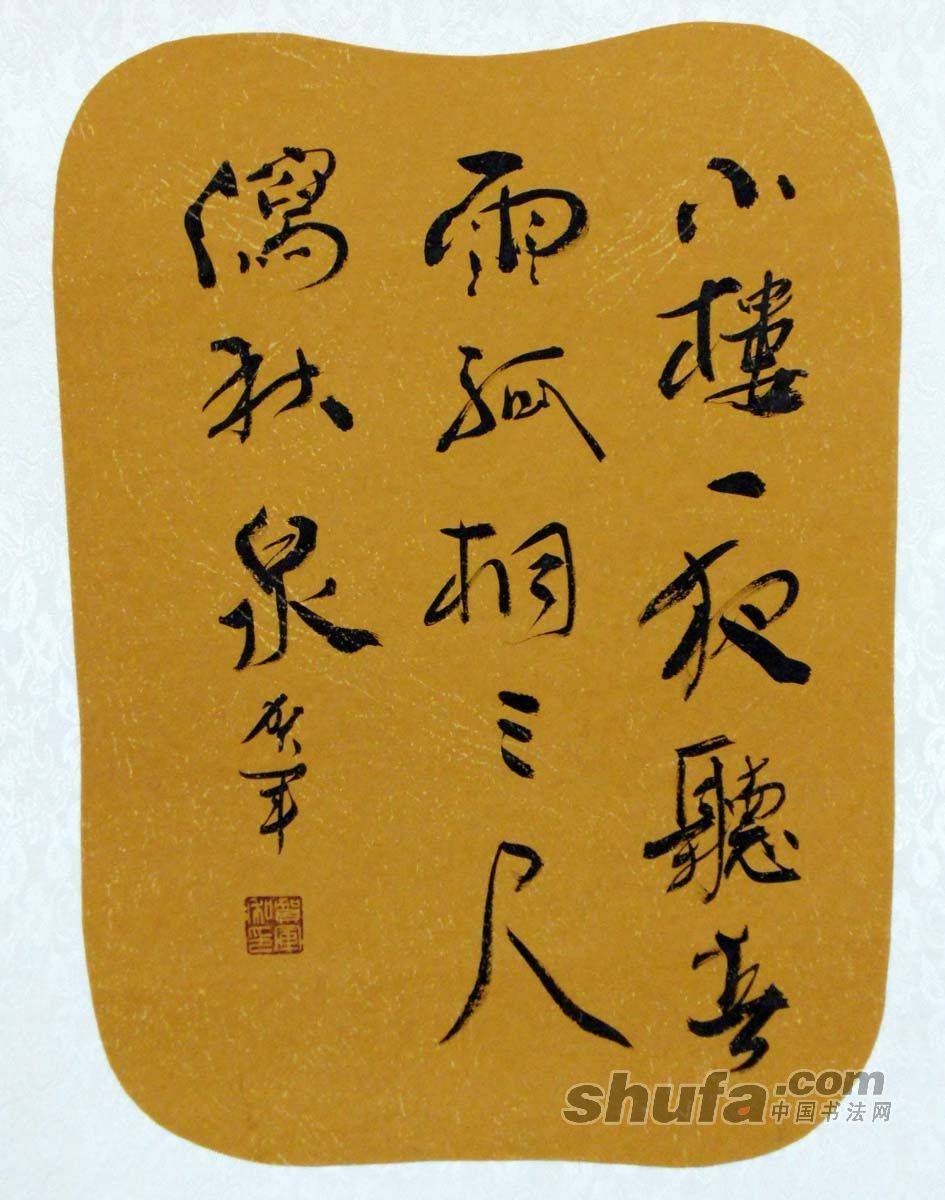 小樓一夜聽春
雨孤桐三尺
瀉秋泉
shufa.com
中国书法网